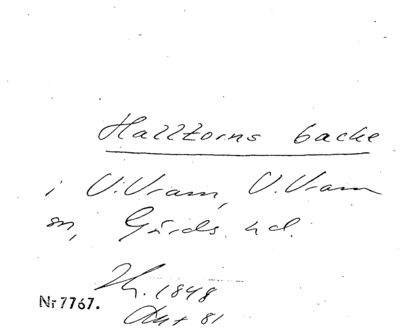 Halltorns backe
i V. Vram, V. Vram
sn, Gärds hd.
1848
Nr 7767.
Akt 81